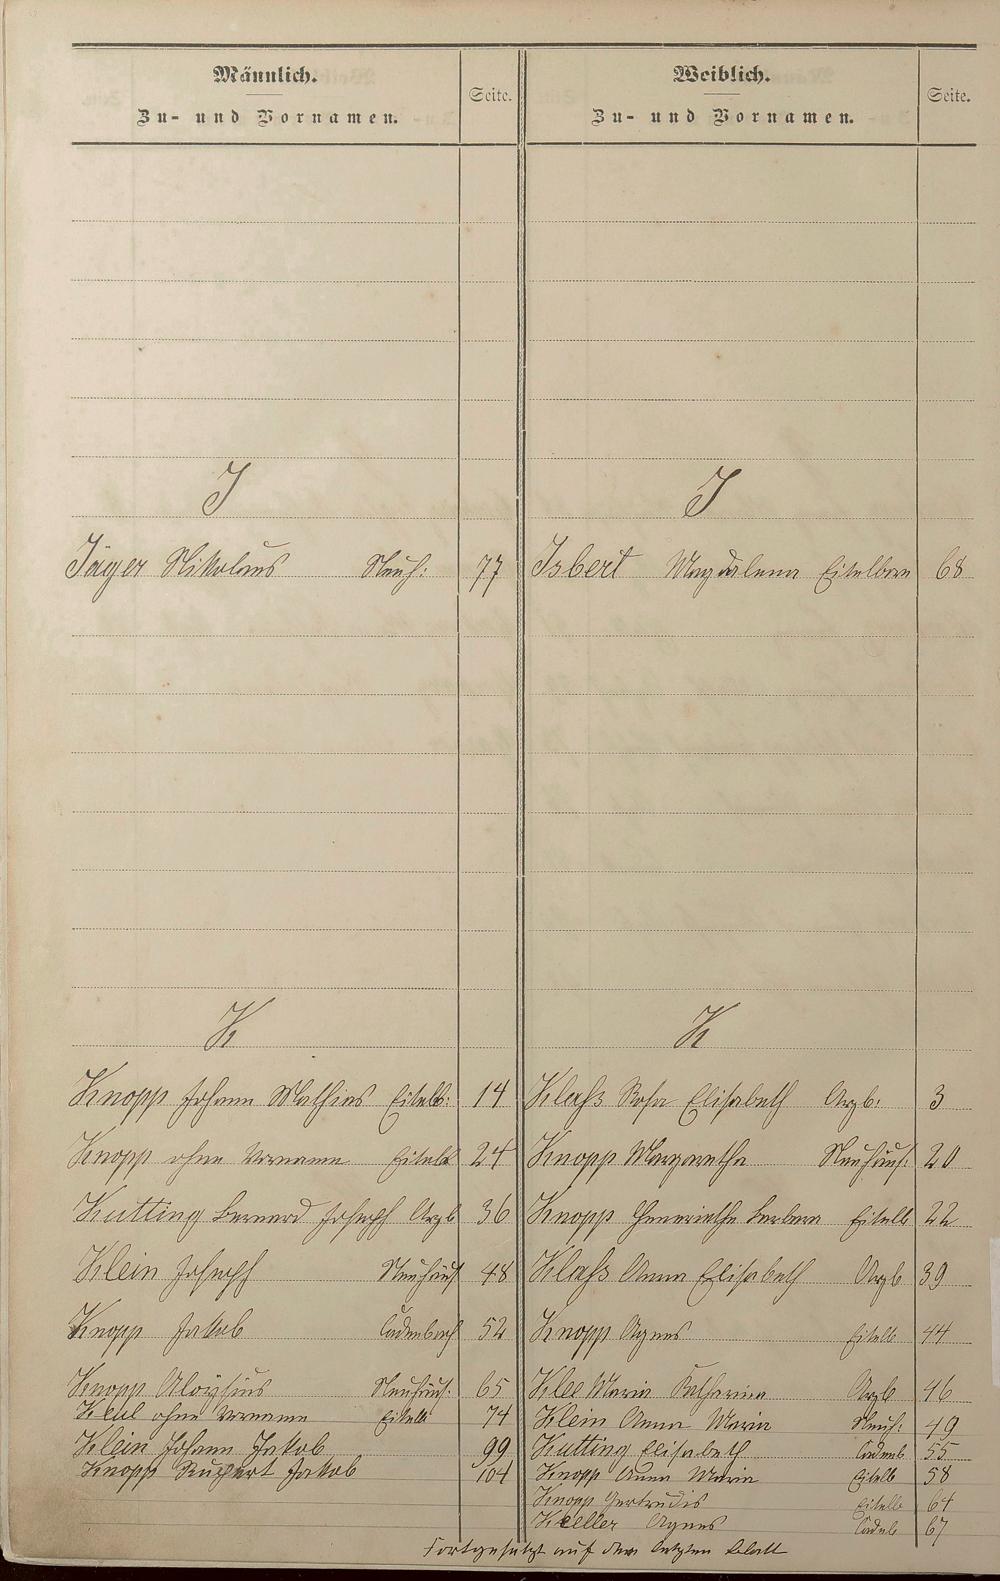 Männlich.
Zu- und Vornamen.
Seite.
J
Jäger Nikolaus Neuh: 77
K
Knopp Johann Mathias Eitelb: 14
Knopp ohne Vorname Eitelb 24
Kutting Bernard Joseph Arzb 36
Klein Joseph Neuhäus 48
Knopp Jakob Cadenbach 52
Knopp Aloysius Neuhäus. 65
Keul ohne Vorname Eitelb 74
Klein Johann Jakob 99
Knopp Rupert Jakob 104
Weiblich.
Zu- und Vornamen.
Seite.
J
Isbert Magdalena Eitelborn 68
K
Klaß Rosa Elisabeth Arzb. 3
Knopp Margaretha Neuhäus: 20
Knopp Barbara Eitelb 22
Klaß Anna Elisabeth Arzb 39
Knopp Agnes Eitelb 44
Klee Maria Katharina Arzb 46
Klein Anna Maria Neuh: 49
Kutting Elisabeth Cadenb 55
Knopp Anna Maria Eitelb 58
Knopp Gertrudis Eitelb 64
Keller Agnes Cadenb 67
Fortgesetzt auf dem letzten Blatt